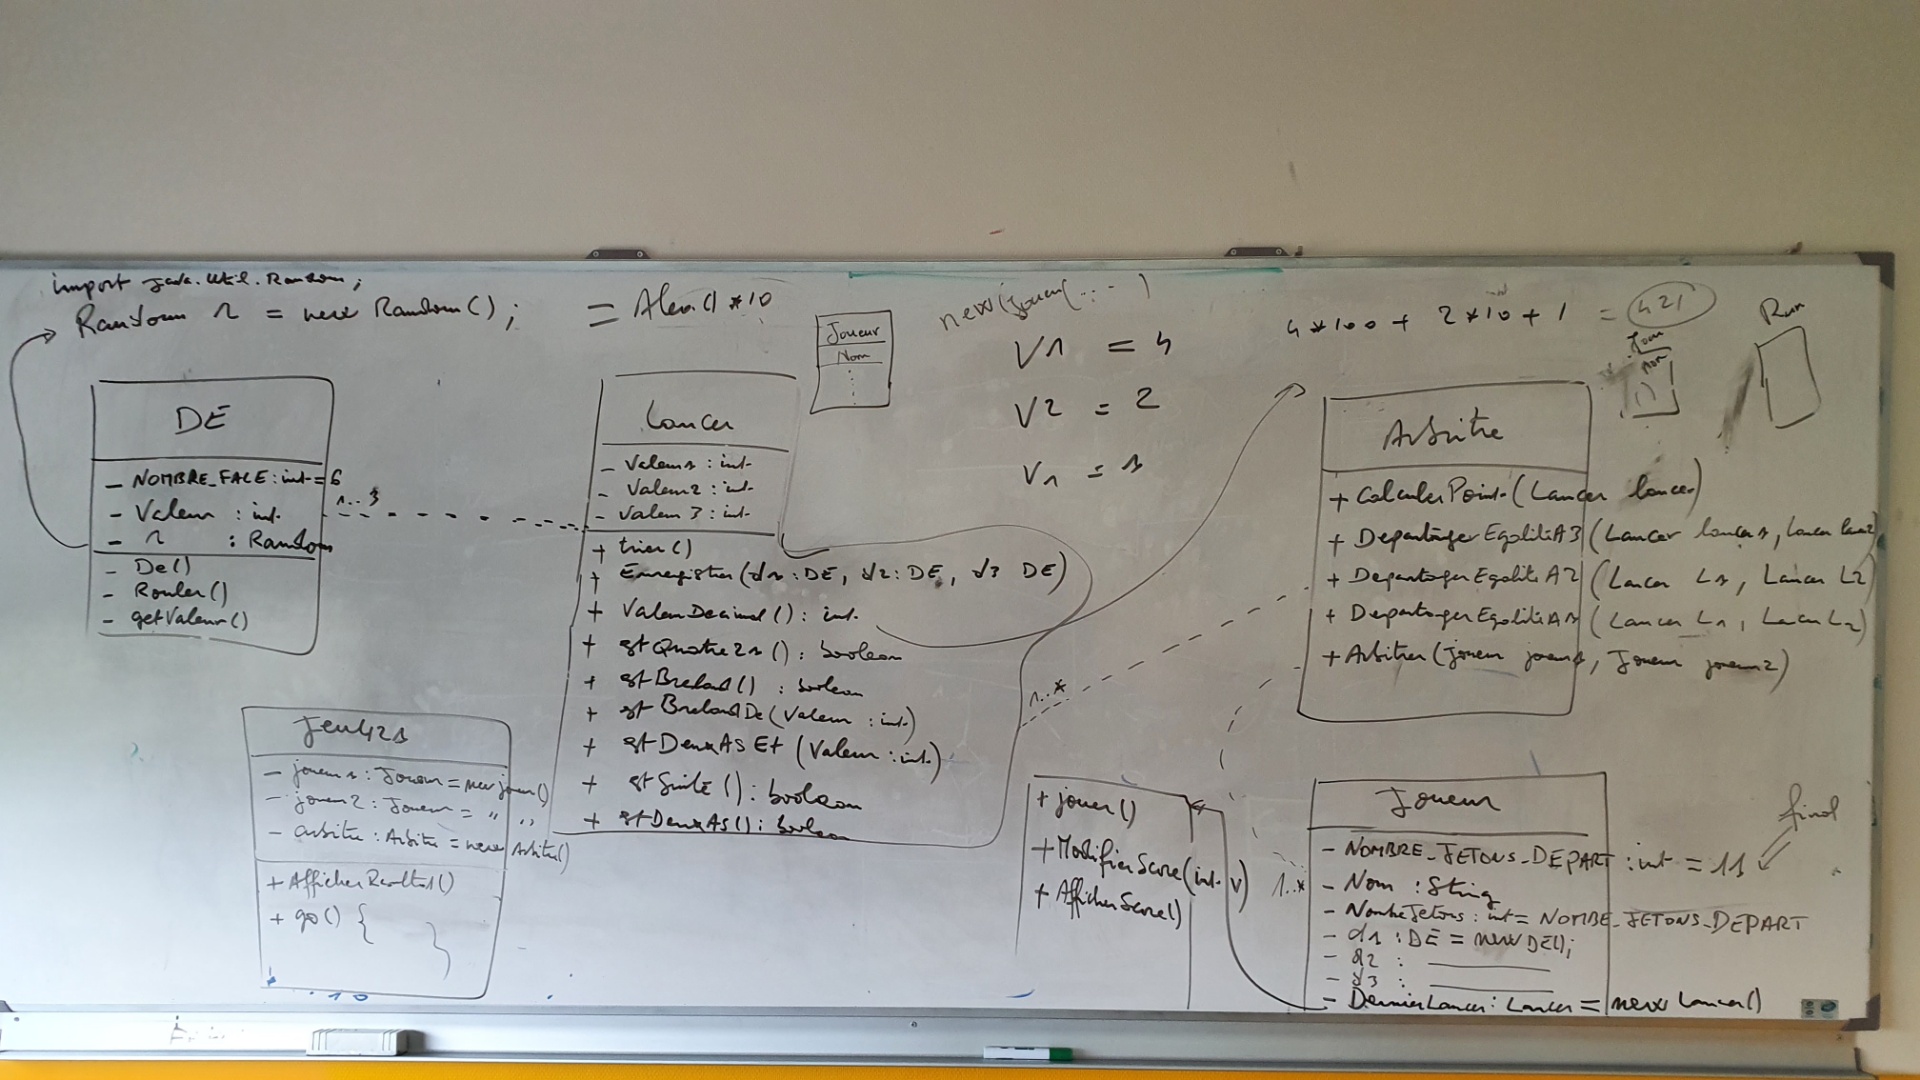 import java.util.Random;
Random r = new Random();
= Alea() *10
Joueur
Nom
new(Joueur(...)
V1 = 4
V2 = 2
V1 = 1
4*100 + 2*10 + 1 = 421
Run
DE
- NOMBRE_FACE: int = 6
- Valeur : int
- r : Random
- De()
- Rouler()
- getValeur()
1..3
Lancer
- Valeur1 : int
- Valeur2 : int
- Valeur3 : int
+ trier()
+ Enregistrer(d1: DE, d2: DE, d3 DE)
+ ValeurDecimal() : int
+ estQuatre21() : boolean
+ estBreland() : boolean
+ estBrelandDe(Valeur : int)
+ estDeuxASEt(Valeur : int)
+ estSuite() : boolean
+ estDeuxAS() : boolean
1..*
Arbitre
+ CalculerPoint(Lancer lancer)
+ DepartagerEgaliteA3(Lancer lancer1, Lancer lancer2)
+ DepartagerEgaliteA2(Lancer L1, Lancer L2)
+ DepartagerEgaliteA1(Lancer L1, Lancer L2)
+ Arbitrer(Joueur joueur1, Joueur joueur2)
Jeu421
- joueur1 : Joueur = new joueur()
- joueur2 : Joueur = " "
- arbitre : Arbitre = new Arbitre()
+ AfficherResultat()
+ go() { }
+ jouer()
+ ModifierScore(int v)
+ AfficherScore()
1..*
Joueur
- NOMBRE_JETONS_DEPART : int = 11
final
- Nom : String
- NombreJetons : int = NOMBE_JETONS_DEPART
- d1 : DE = new DE();
- d2 :
- d3 :
- DernierLancer : Lancer = new Lancer()